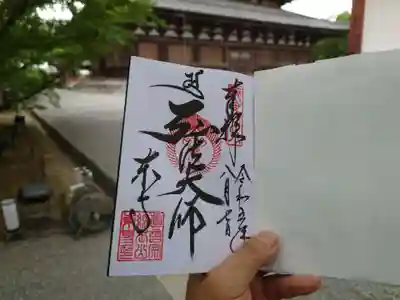 奉拝
令和五年
八月七日
弘法大師
東寺